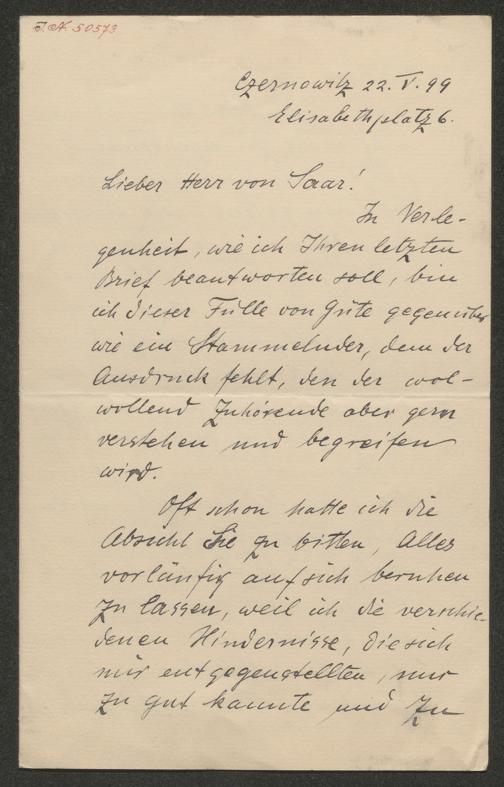 I.N. 50573
Czernowitz 22. V. 99
Elisabethplatz 6.
Lieber Herr von Saar!
In Verle-
genheit, wie ich Ihren letzten
Brief beantworten soll, bin
ich dieser Fülle von Güte gegenüber
wie ein Stammelnder, dem der
Ausdruck fehlt, den der wol-
wollend Zuhörende aber gern
verstehen und begreifen
wird.
Oft schon hatte ich die
Absicht Sie zu bitten, Alles
vorläufig auf sich beruhen
zu lassen, weil ich die verschie-
denen Hindernisse, die sich
mir entgegenstellten, nur
zu gut kannte und zu